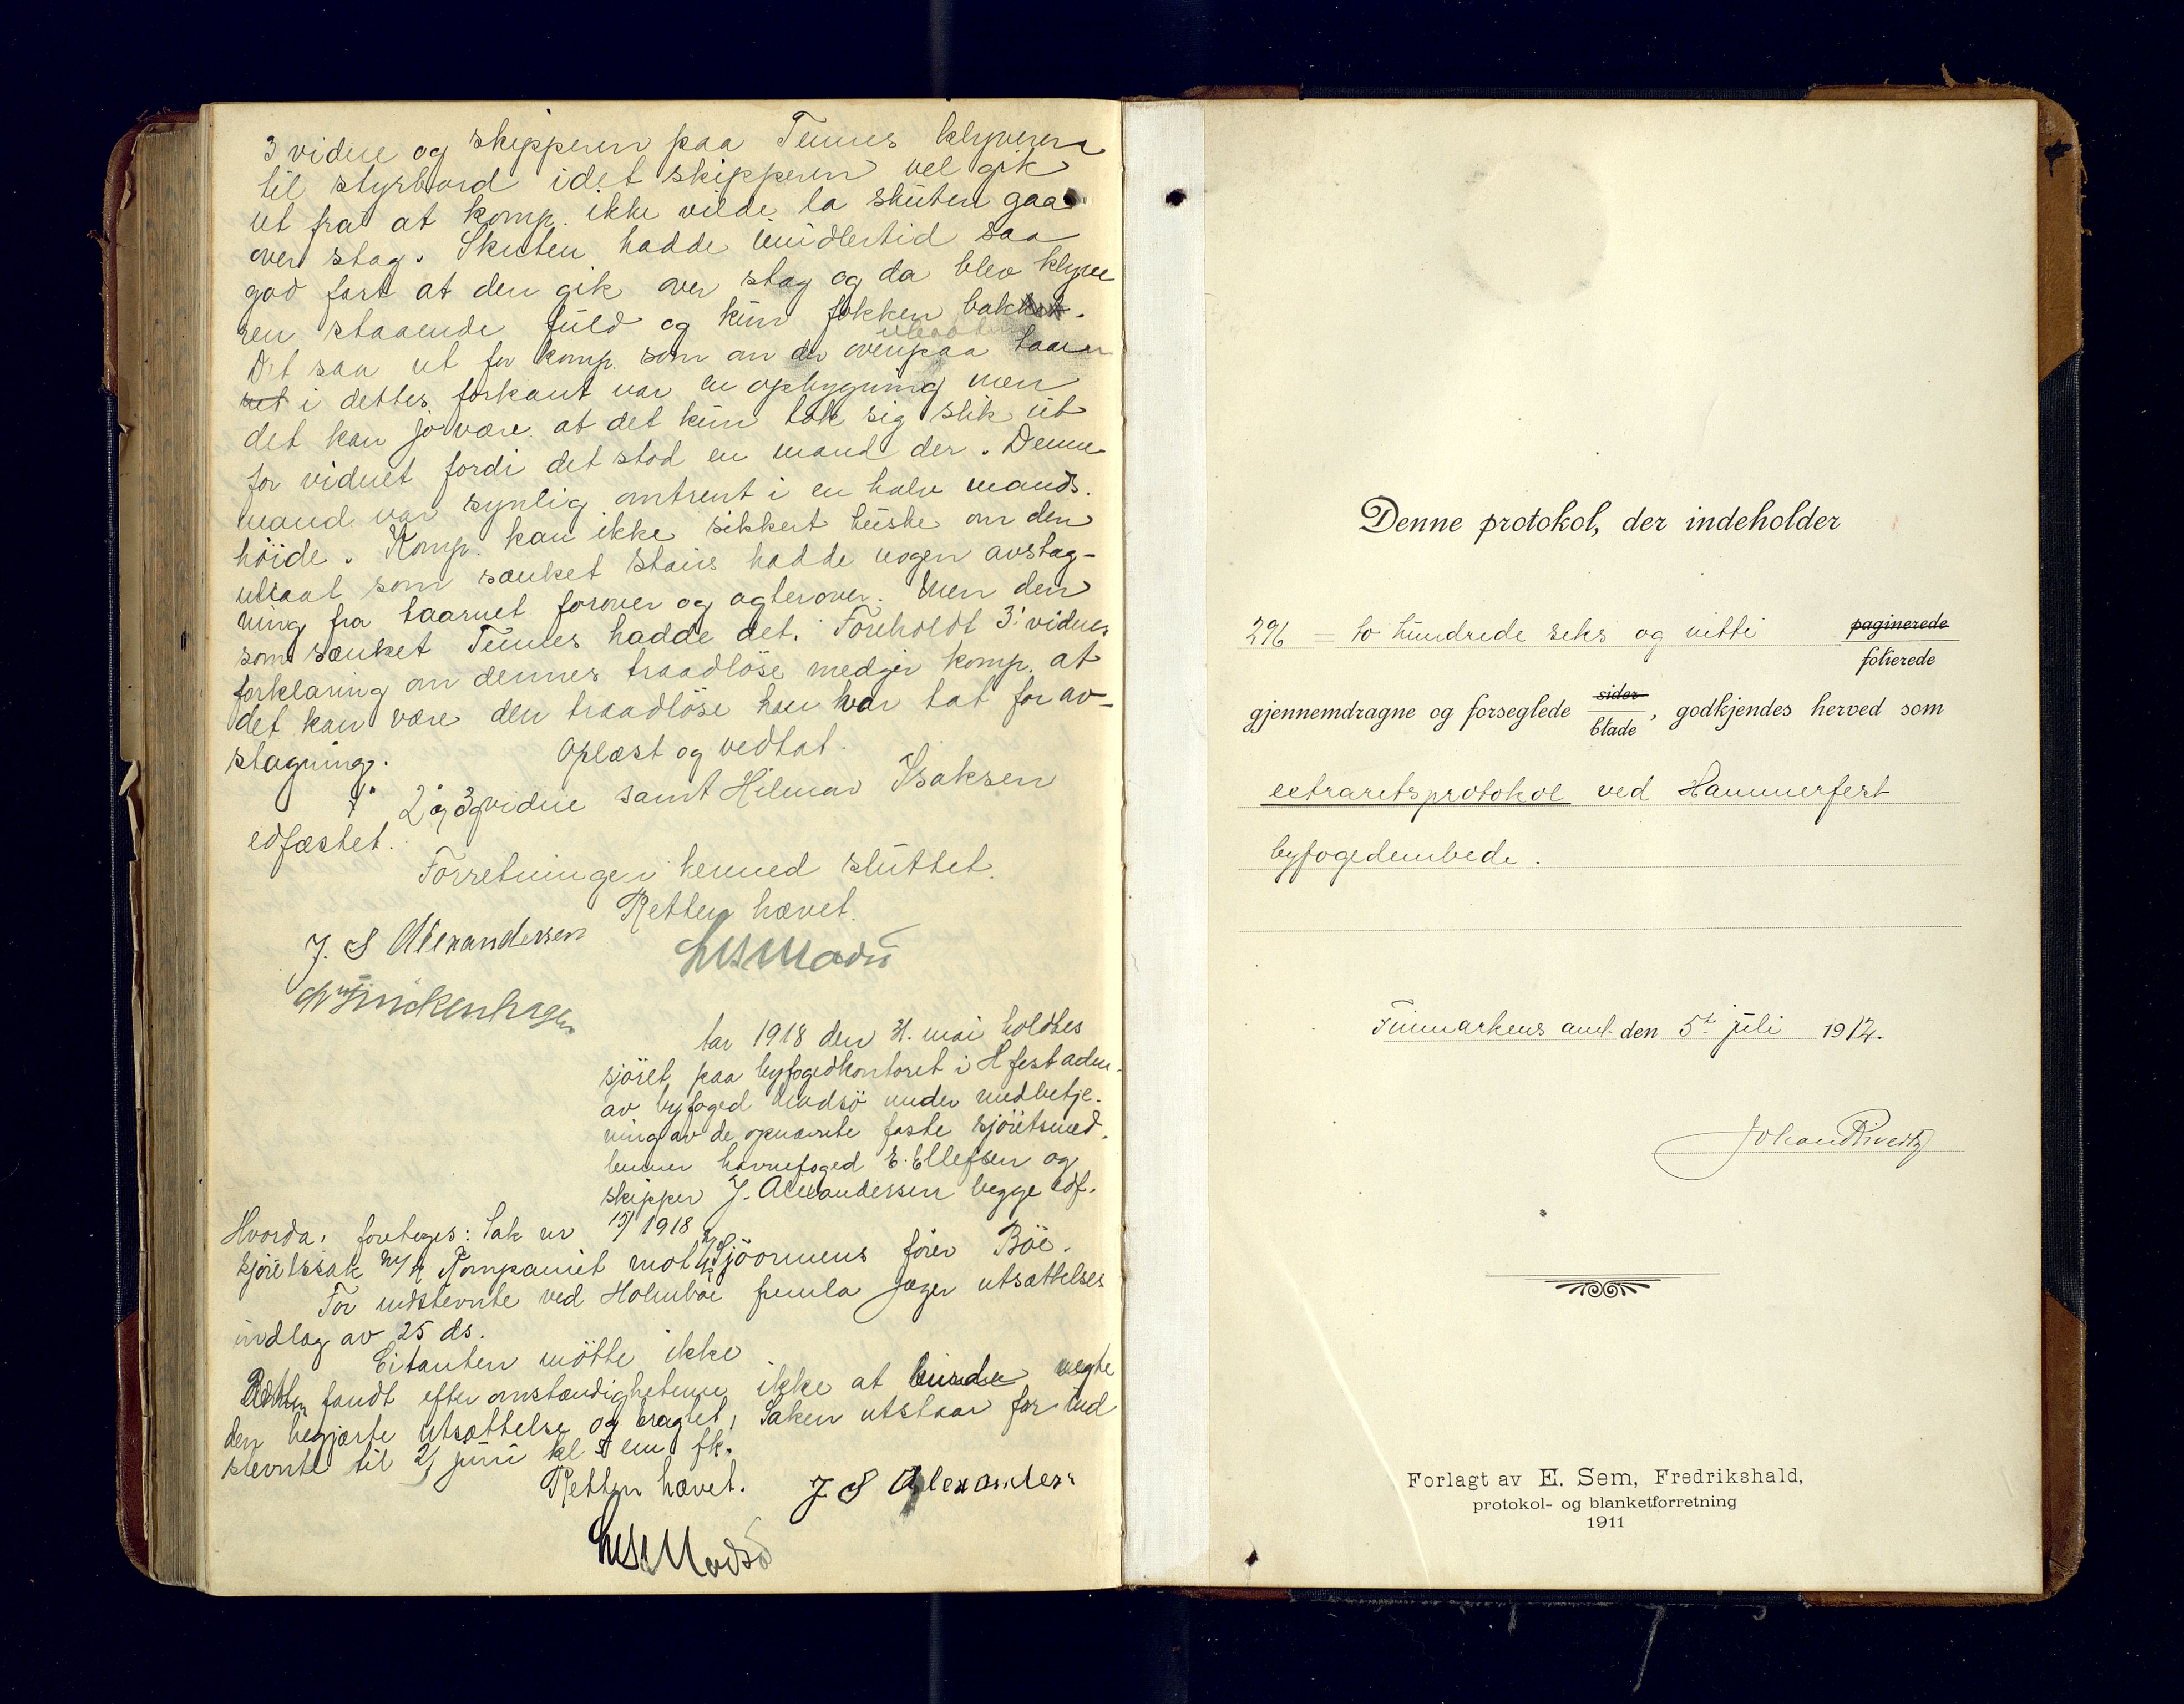 3 vidne og skipperen paa Tennes klyveren
til styrbord idet skipperen vel gik
ut fra at komp. ikke vilde la skuten gaa
over stag. Skuten hadde imidlertid saa
god fart at den gik over stag og da blev klyve
ren staaende fuld og kun fokken bakket.
Det saa ut for komp. som om der ovenpaa taarn
net i dettes forkant var en opbygning men
det kan jo være at det kun tok sig slik ut
for vidnet fordi det stod en mand der. Denne
mand var synlig omtrent i en halv mands.
höide. Komp. kan ikke sikkert huske om den
ubaat som sænket Stairs hadde nogen avstag-
ning fra taarnet forover og agterover. Men den
som sænket Tennes hadde det. Foreholdt 3' vidnes
forklaring om dennes traadlöse medgir komp. at
det kan være den traadlöse han har tat for av-
stagning. Oplæst og vedtat.
1° 2 og 3 vidne samt Hilmar Isaksen
edfæstet.
Forretningen hermed sluttet.
Retten hævet.
J. S Alexandersen
Aar 1918 den 31. mai holdtes
sjöret paa byfogedkontoret i Hfest adm.
av byfoged Madsö under medbetje-
ning av de opnævnte faste sjöretsmed-
lemmer havnefoged E. Ellefsen og
skipper J. Alexandersen begge edf.
Hvorda, foretoges: Sak nr 15/1918
sjöretssak Kompaniet mot Sjöormens förer Böe.
For indstevnte ved Holmboe fremla Jæger utsættelses
indlæg av 25 ds.
Citanten mötte ikke
Retten fandt efter omstændighetene ikke at burde negte
den begjærte utsættelse og eragtet, Saken utstaar for ind
stevnte til 21 juni kl 5 em fk.
Retten hævet. J S Alexanders
Madsö
Denne protokol, der indeholder
296 = to hundrede seks og nitti paginerede
folierede
gjennemdragne og forseglede sider
blade, godkjendes herved som
extraretsprotokol ved Hammerfest
byfogedembede.
Finmarkens amt den 5te juli 1912.
Johan Rivertz
Forlagt av E. Sem, Fredrikshald,
protokol- og blanketforretning
1911